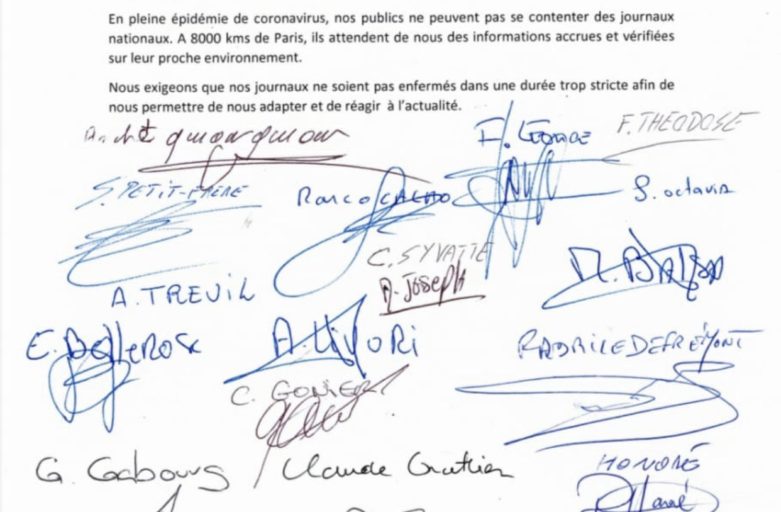 En pleine épidémie de coronavirus, nos publics ne peuvent pas se contenter des journaux
nationaux. A 8000 kms de Paris, ils attendent de nous des informations accrues et vérifiées
sur leur proche environnement.
Nous exigeons que nos journaux ne soient pas enfermés dans une durée trop stricte afin de
nous permettre de nous adapter et de réagir à l'actualité.
F. THEODOSE
S. PETIT-FRERE
S. octavia
C. SYVATTE
A. TREVIL
D. JOSEPH
E. BelleROSE
C. GONIER
G. Gabours
Claude Gratien
HONORÉ